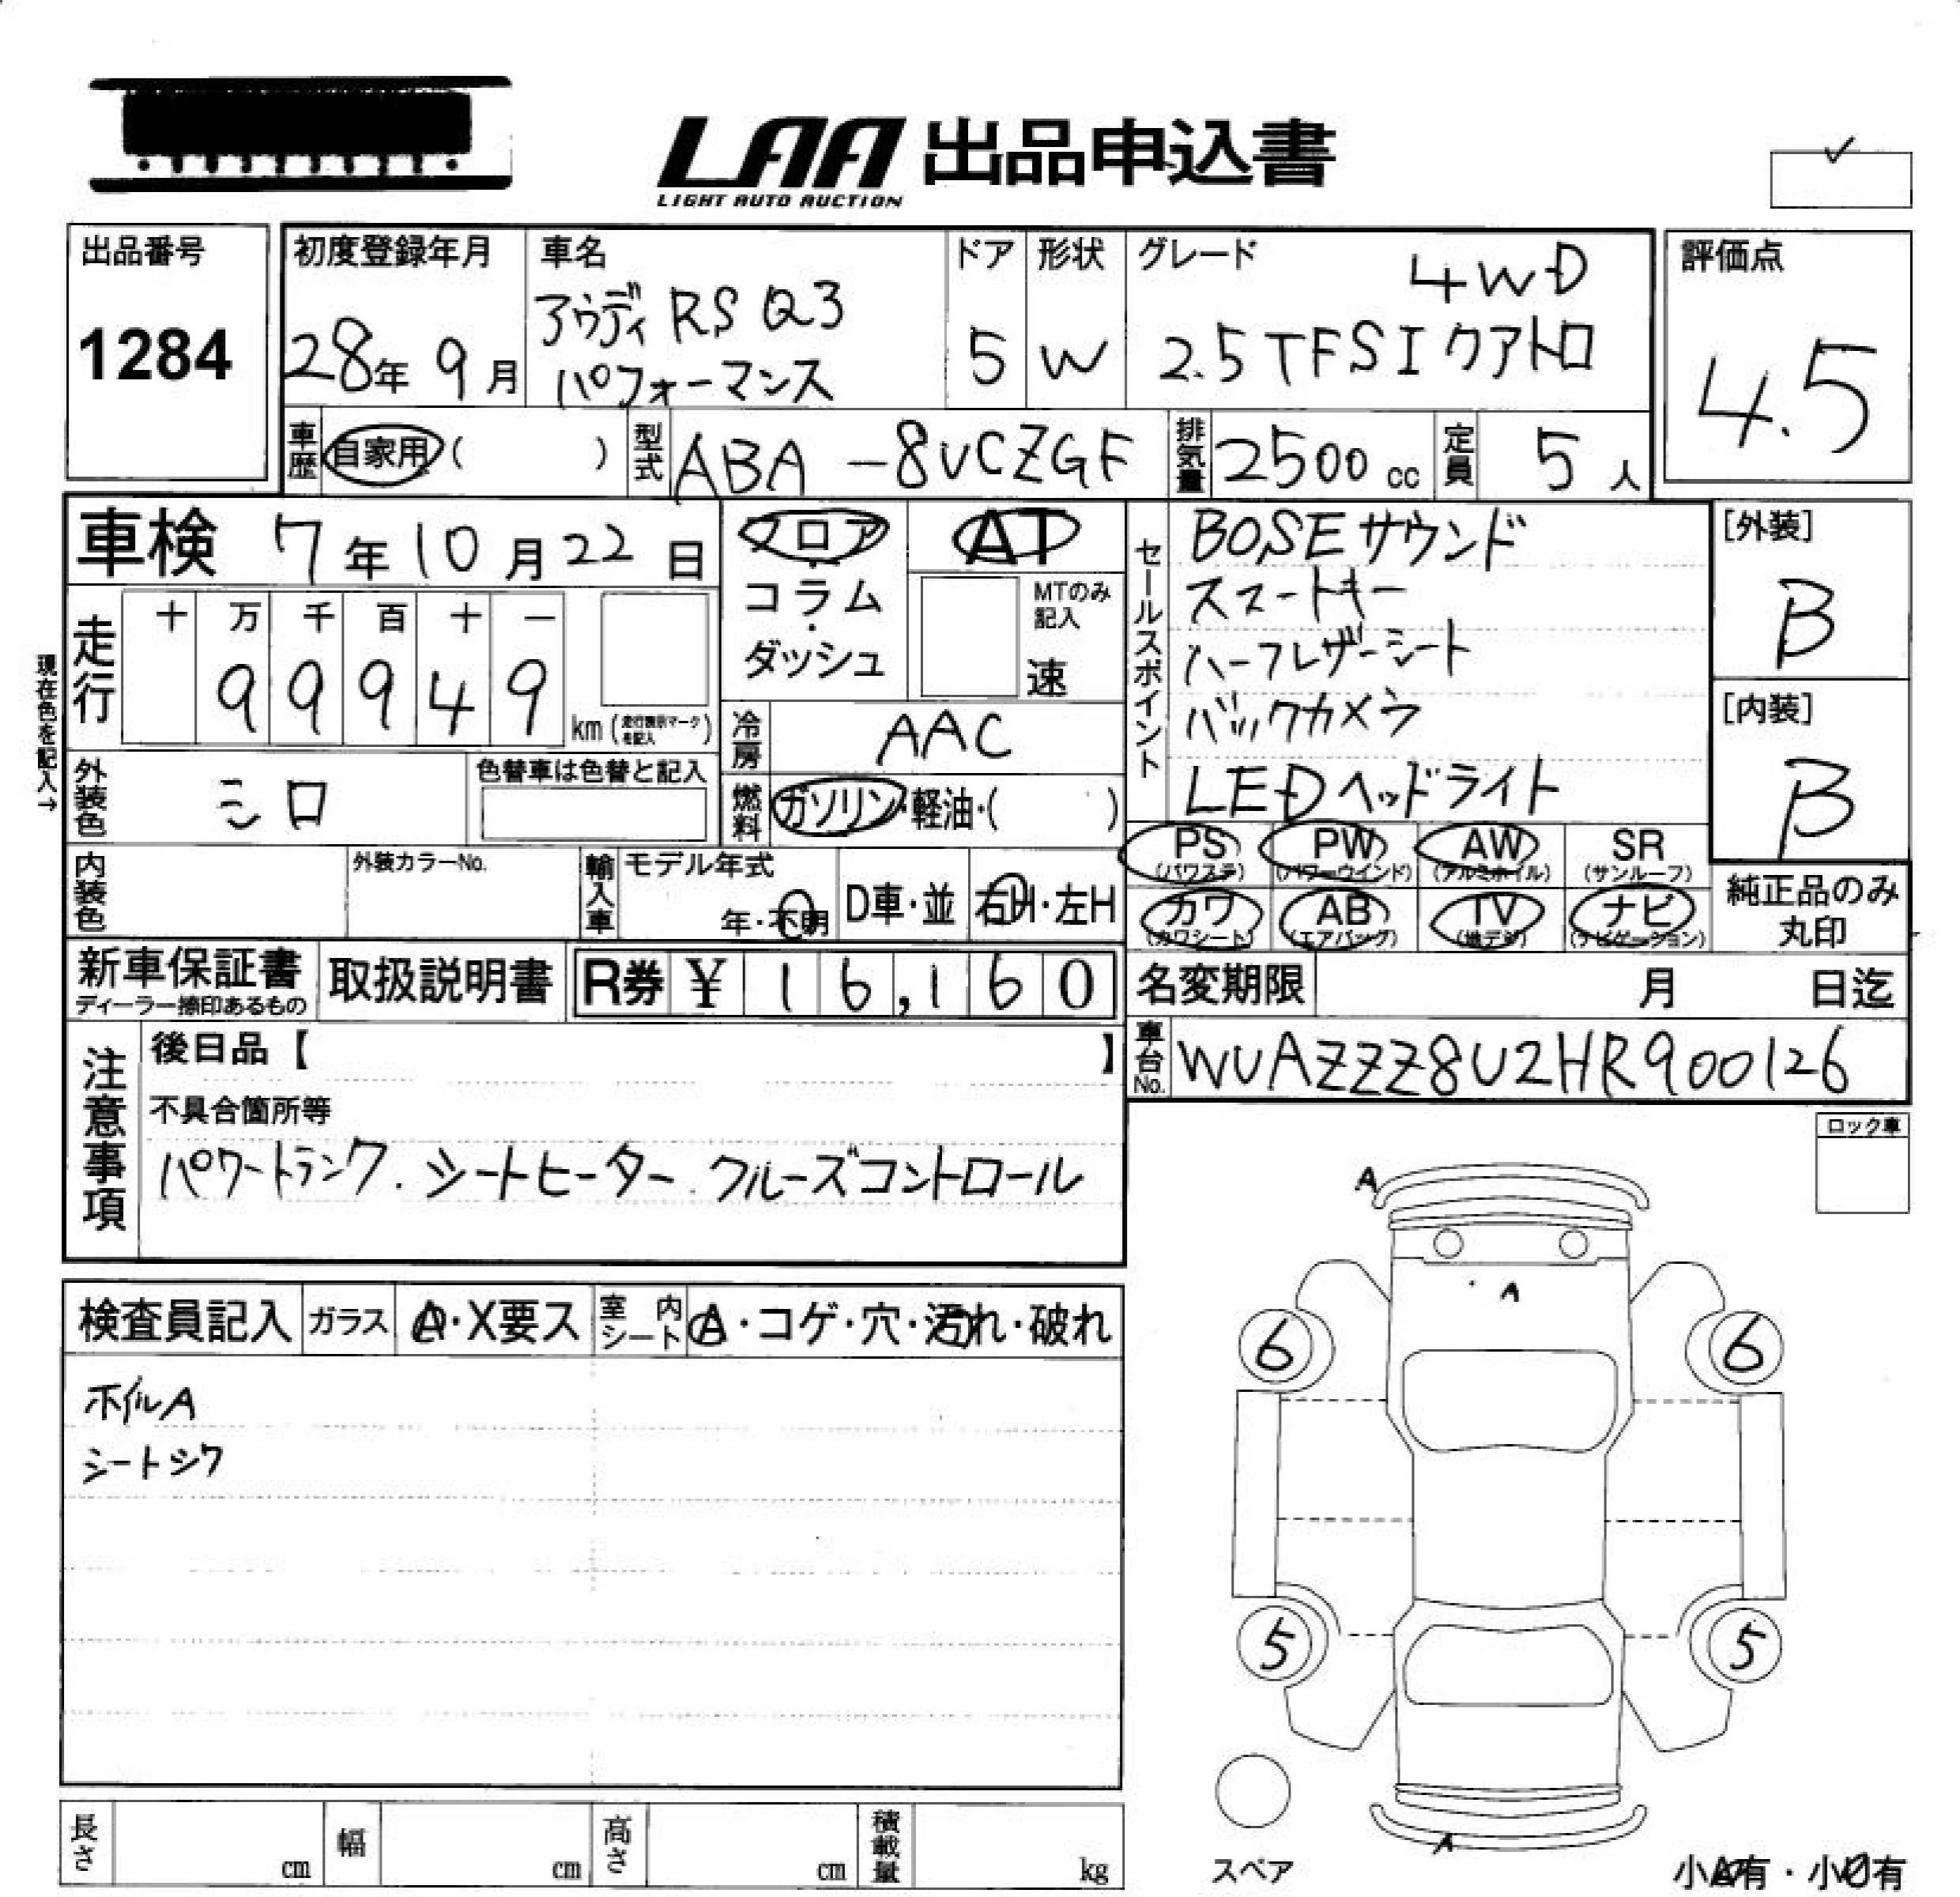 LAA 出品申込書
LIGHT AUTO AUCTION
出品番号
1284
初度登録年月
28年 9月
車名
アウディ RS Q3
パフォーマンス
ドア
5
形状
W
グレード
4WD
2.5TFSIクアトロ
評価点
4.5
車歴
自家用( )
型式
ABA-8UCZGF
排気量
2500cc
定員
5人
車検 7年10月22日
フロア
・
コラム
・
ダッシュ
AT
MTのみ記入
速
セールスポイント
BOSEサウンド
スマートキー
ハーフレザーシート
バックカメラ
LEDヘッドライト
[外装]
B
[内装]
B
現在色を記入→
走行
十 万 千 百 十 一
9 9 9 4 9
km(走行表示マークを記入)
冷房
AAC
外装色
シロ
色替車は色替と記入
燃料
ガソリン・軽油・( )
PS(パワステ) PW(パワーウインド) AW(アルミホイル) SR(サンルーフ)
カワ(カワシート) AB(エアバッグ) TV(地デジ) ナビ(ナビゲーション)
純正品のみ
丸印
内装色
外装カラーNo.
輸入車
モデル年式
年・不明
D車・並
右H・左H
新車保証書
ディーラー捺印あるもの
取扱説明書
R券 ¥ 16,160
名変期限 月 日迄
車台No.
WUAZZZ8U2HR900126
注意事項
後日品【 】
不具合箇所等
パワートランク.シートヒーター.クルーズコントロール
ロック車
検査員記入
ガラス
A・X要ス
室内シート
A・コゲ・穴・汚れ・破れ
ホイルA
シートシワ
A
A
6 6
5 5
A
スペア
小A有・小U有
長さ cm
幅 cm
高さ cm
積載量 kg